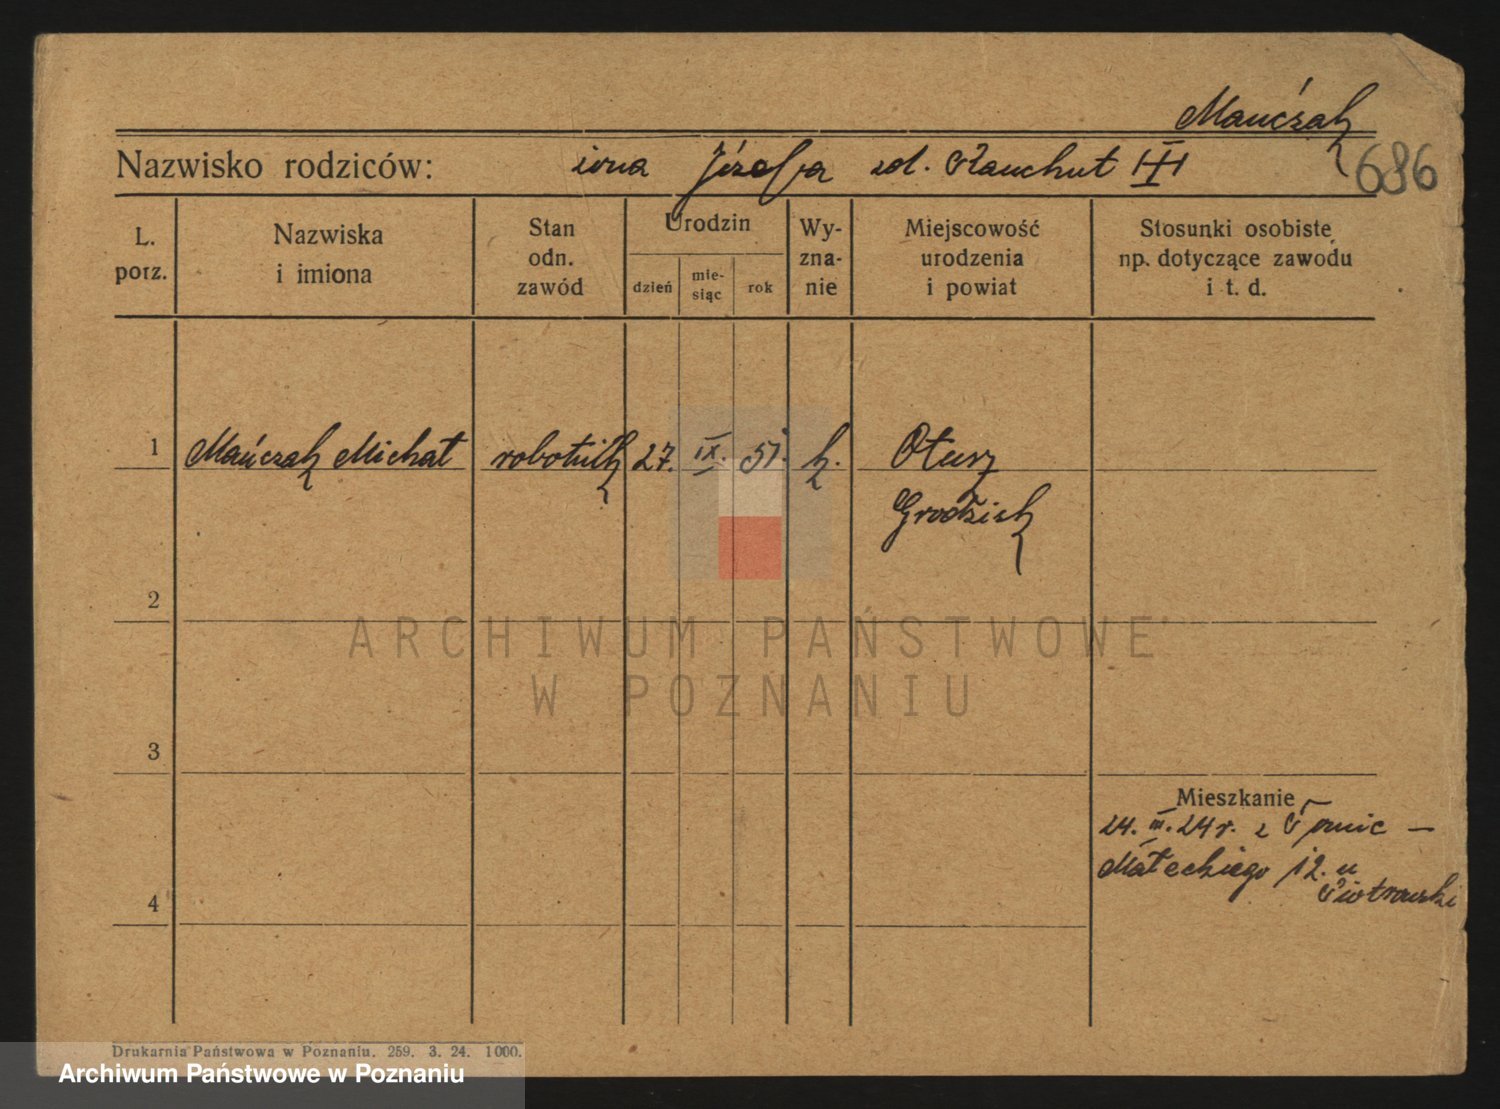 Mańczak
Nazwisko rodziców: żona Józefa zd. Kauchut III
686
L. porz.
Nazwiska i imiona
Stan odn. zawód
Urodzin
dzień
mie-siąc
rok
Wy-zna-nie
Miejscowość urodzenia i powiat
Stosunki osobiste np. dotyczące zawodu i t. d.
1 Mańczak Michał robotnik 27. IX. 51. k. Otusz
Grodzisk
2
ARCHIWUM PAŃSTWOWE
W POZNANIU
3
Mieszkanie
24. III. 24 r. z Tomic —
Małeckiego 12. u
Piotrowski
4
Drukarnia Państwowa w Poznaniu. 259. 3. 24. 1000.
Archiwum Państwowe w Poznaniu